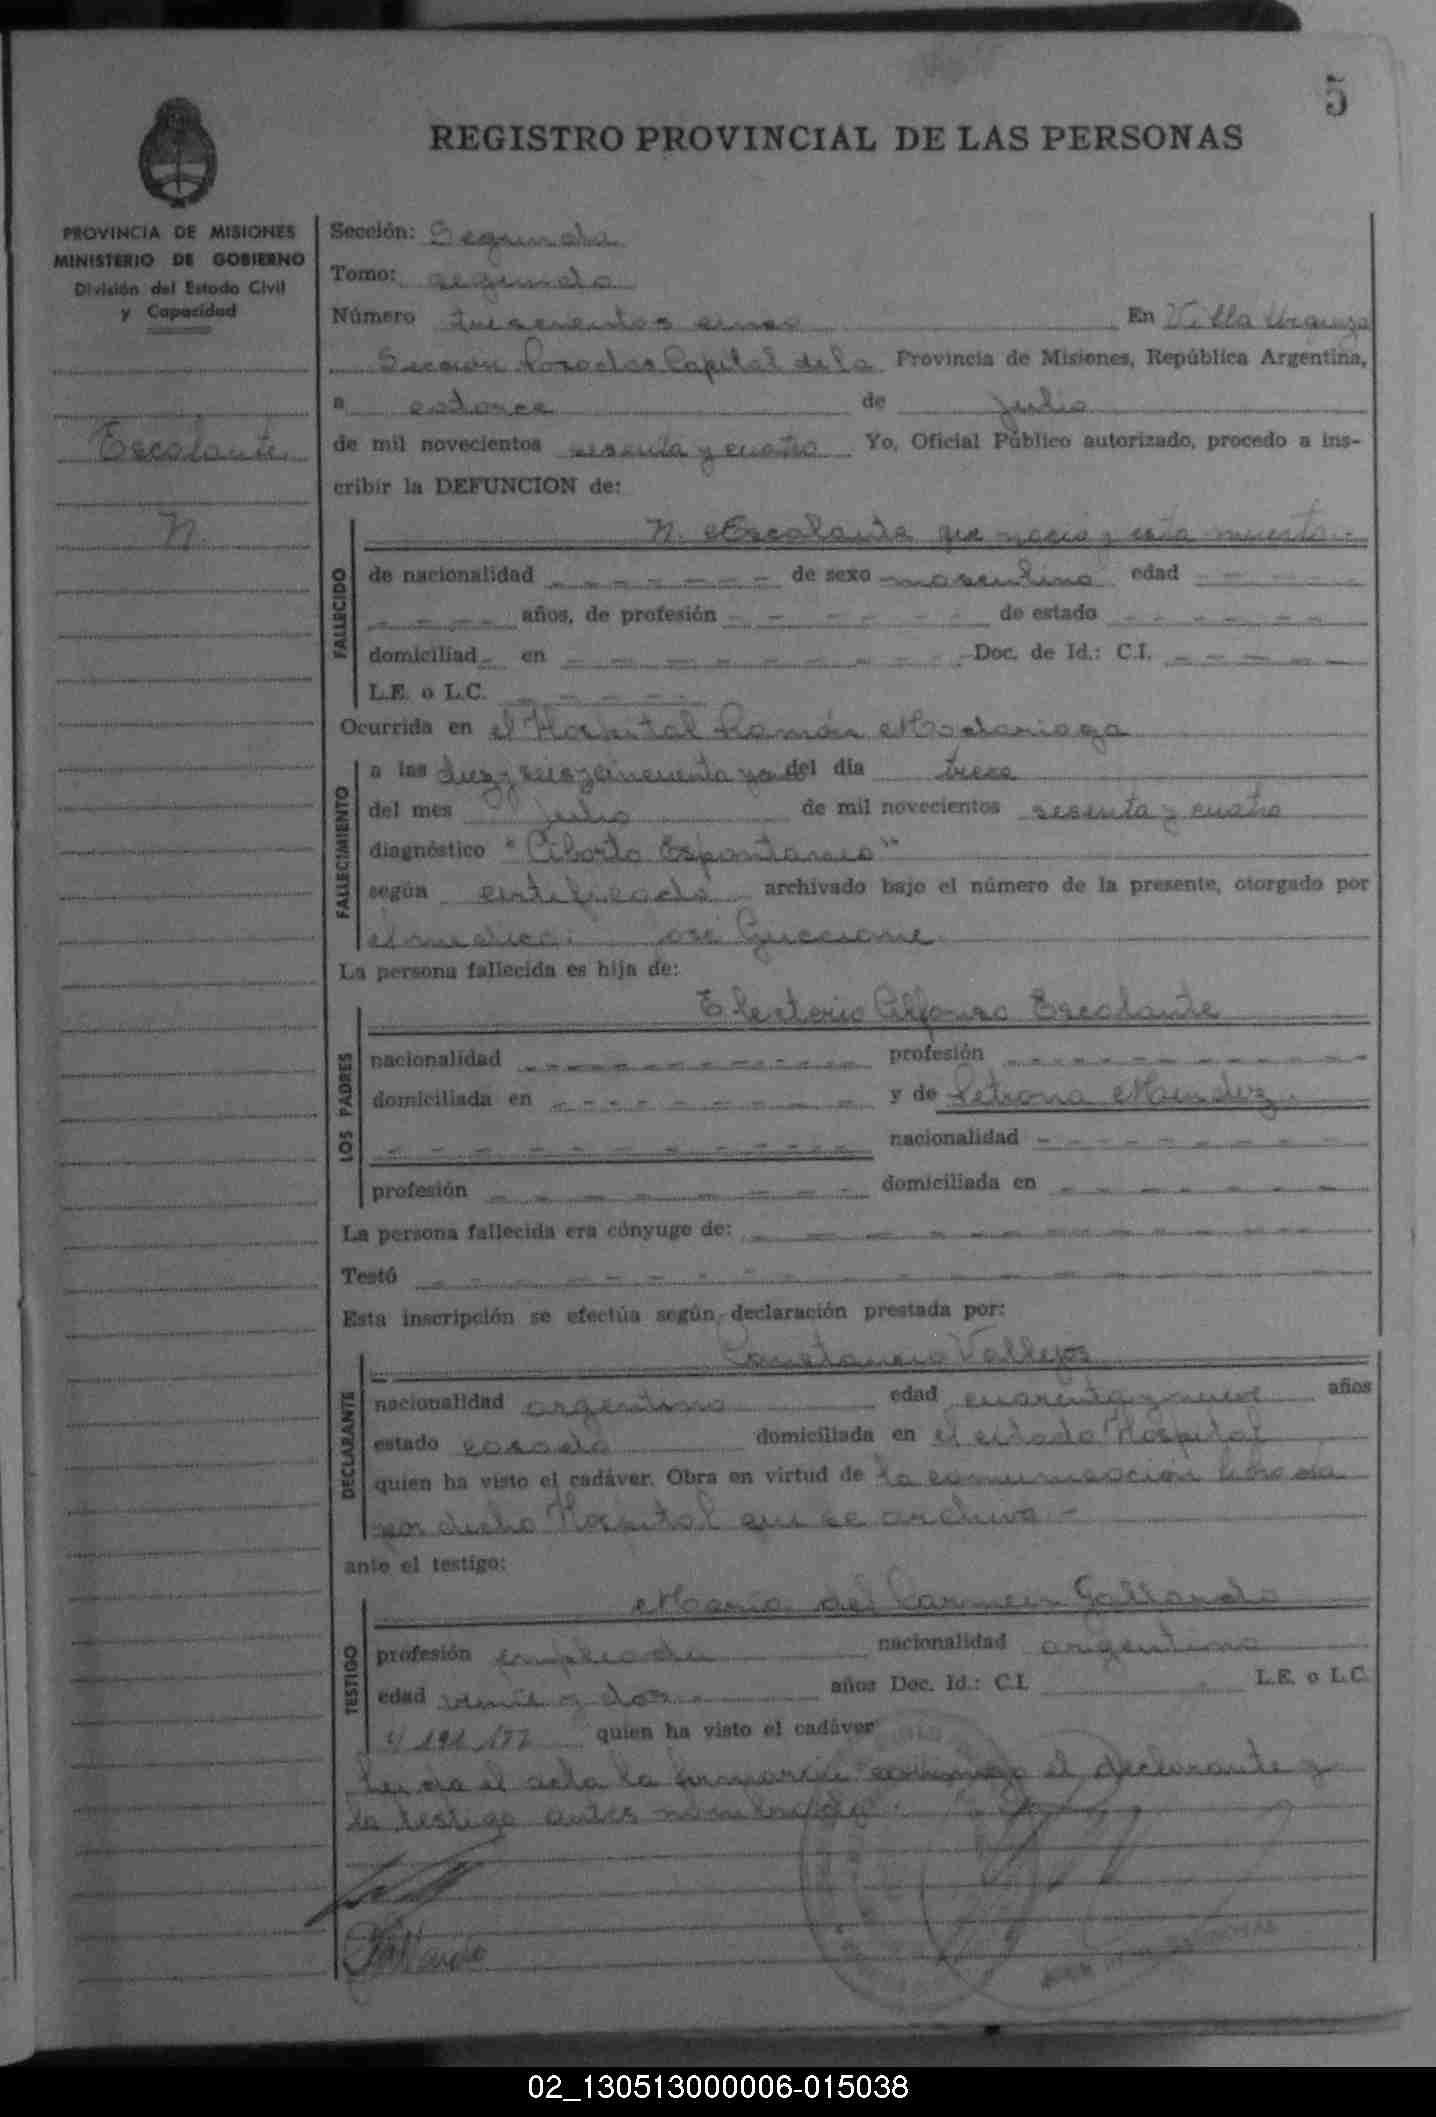 5
REGISTRO PROVINCIAL DE LAS PERSONAS
PROVINCIA DE MISIONES
MINISTERIO DE GOBIERNO
División del Estado Civil
y Capacidad
Escalante
N.
Sección: Segunda
Tomo: segundo
Número trescientos cinco En Villa Urquiza
Sección Posadas Capital de la Provincia de Misiones, República Argentina,
a catorce de julio
de mil novecientos sesenta y cuatro Yo, Oficial Público autorizado, procedo a ins-
cribir la DEFUNCION de:
N. Escalante que nacio y esta muerto.-
FALLECIDO
de nacionalidad - - - - - - - de sexo masculino edad - - - -
- - - - años, de profesión - - - - - - de estado - - - - - -
domiciliad- en - - - - - - - - - Doc. de Id.: C.I. - - - - -
L.E. o L.C. - - - - -
Ocurrida en el Hospital Ramón Madariaga
FALLECIMIENTO
a las diez y seis y cincuenta del día trece
del mes julio de mil novecientos sesenta y cuatro
diagnóstico "Aborto Espontaneo"
según certificado archivado bajo el número de la presente, otorgado por
el medico: José Guccione
La persona fallecida es hija de:
LOS PADRES
Electerio Alfonso Escalante
nacionalidad - - - - - - - - - - profesión - - - - - - - - - -
domiciliada en - - - - - - - - y de Petrona Mendez.
- - - - - - - - - - - nacionalidad - - - - - - - -
profesión - - - - - - - - domiciliada en - - - - - - -
La persona fallecida era cónyuge de: - - - - - - - - - - -
Testó - - - - - - - - - - - - - - -
Esta inscripción se efectúa según declaración prestada por:
DECLARANTE
Constancio Vallejos
nacionalidad argentino edad cuarenta y nueve años
estado casado domiciliada en el citado Hospital
quien ha visto el cadáver. Obra en virtud de la comunicación librada
por dicho Hospital que se archiva.-
ante el testigo:
TESTIGO
Maria del Carmen Gallardo
profesión empleada nacionalidad argentina
edad veinte y dos. años Doc. Id.: C.I. L.E. o L.C.
4/191.177 quien ha visto el cadáver
Leida el acta la firmaron conmigo el declarante y
la testigo antes nombrados.
Gallardo
02_130513000006-015038